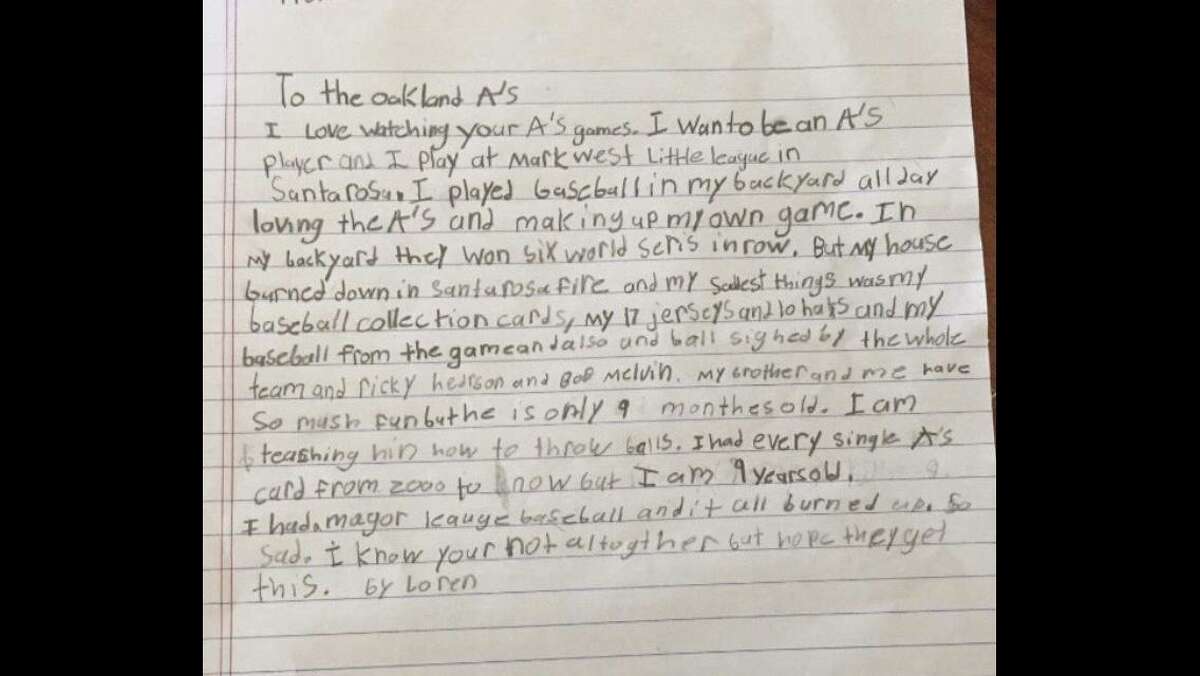 To the oakland A's
I Love watching your A's games. I Wanto be an A's
player and I play at Mark west Little league in
Santarosa. I played baseball in my backyard all day
loving the A's and making up my own game. In
my backyard they won six world seris in row. But my house
burned down in Santarosa fire and my saddest things was my
baseball collection cards, my 17 jerseys and 10 hats and my
baseball from the game and also und ball signed by the whole
team and ricky hedrson and Bob Melvin. my brother and me have
so mush fun but he is only 9 monthes old. I am
teashing hin how to throw balls. I had every single A's
card from 2000 to now but I am 9 years old.
I had a mayor leauge baseball and it all burned up. So
sad. I know your not altogther but hope they get
this. by Loren